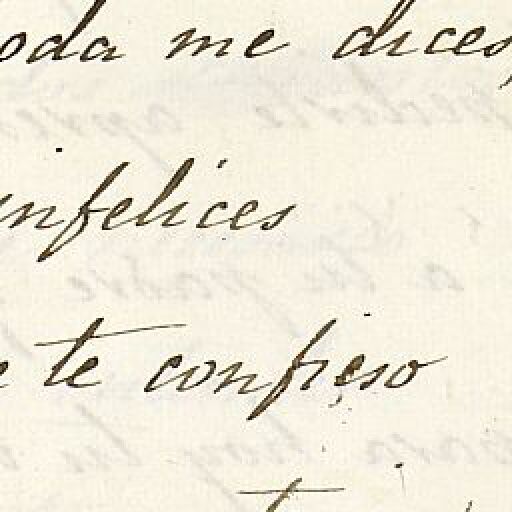 oda me dices,
infelices
e te confieso